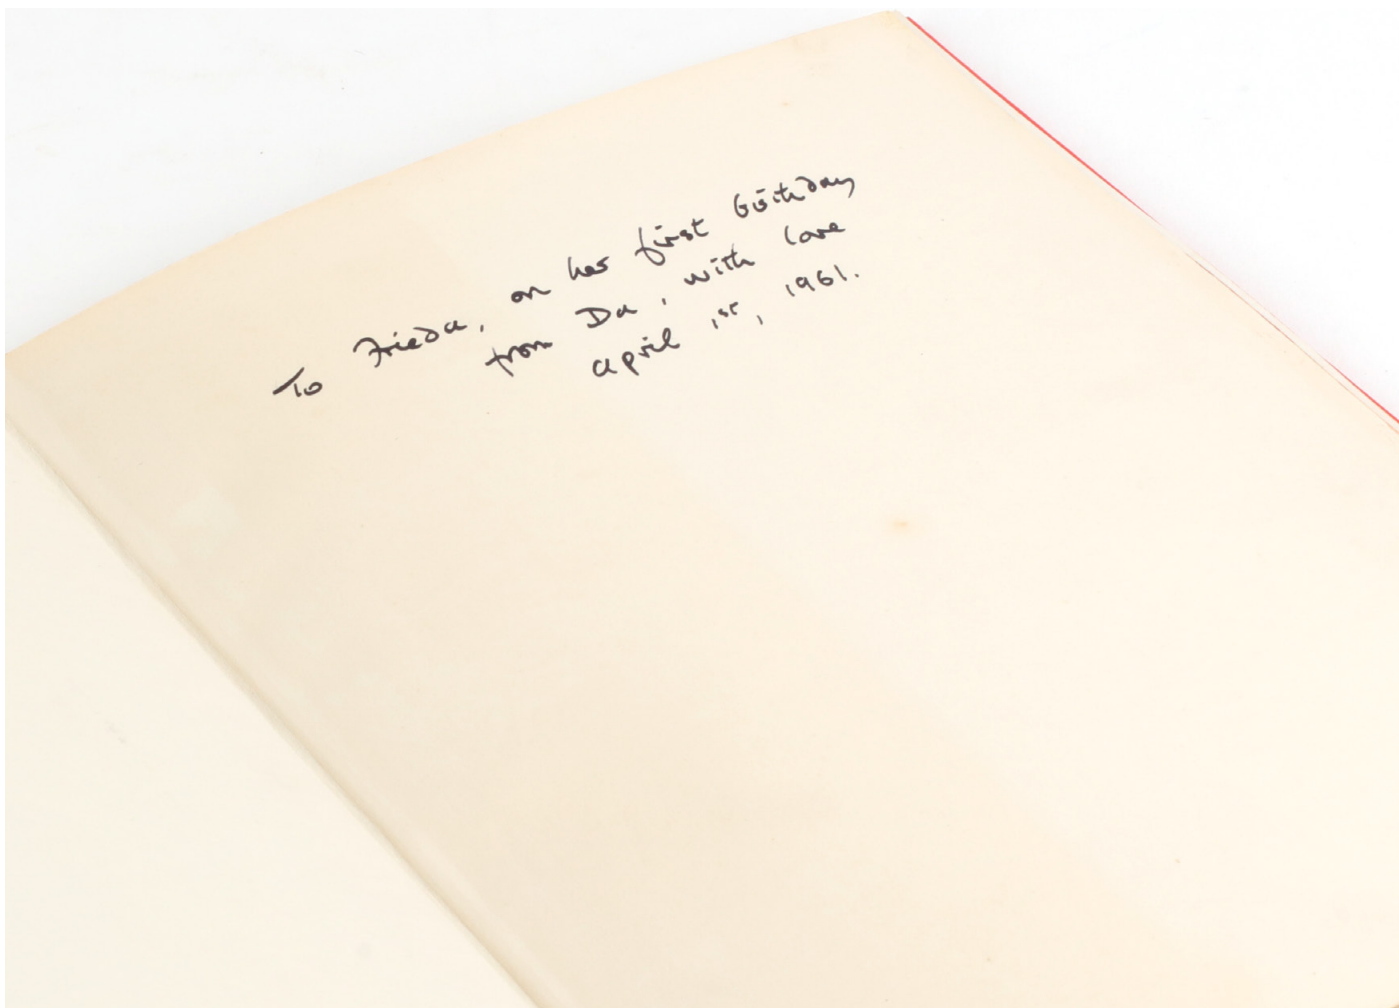 To Frieda, on her first birthday
from Da, with love
april 1st, 1961.